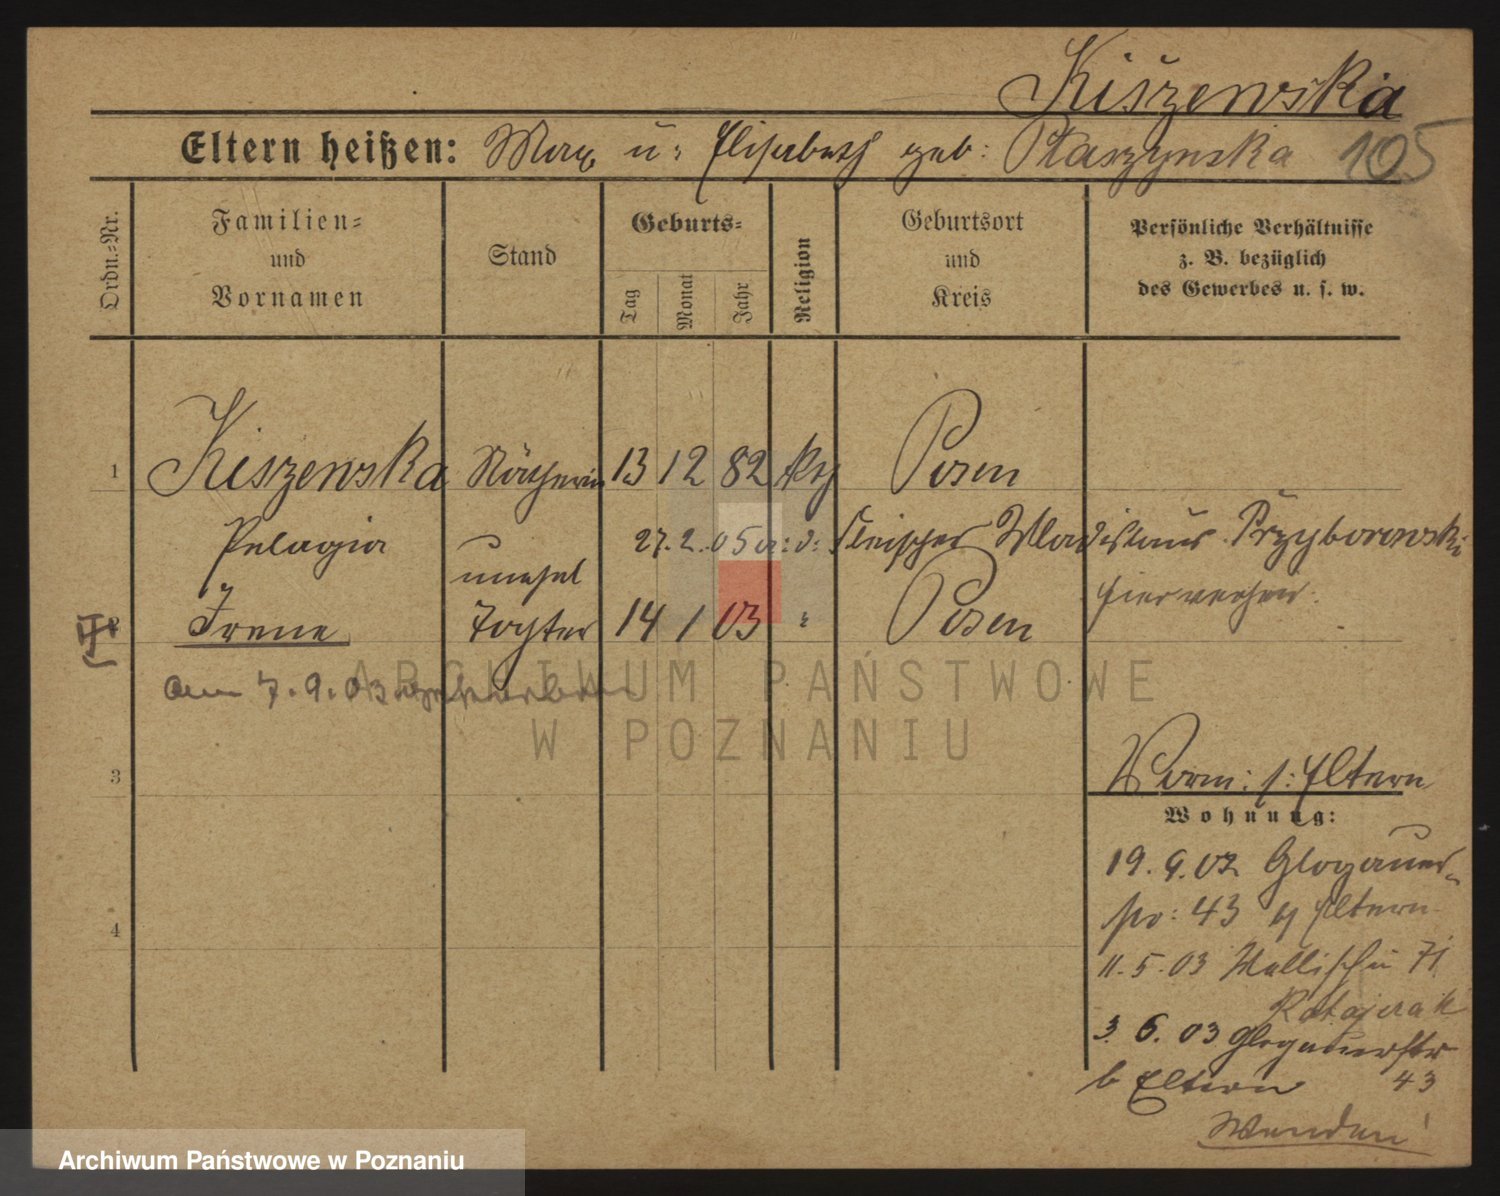 Kiszewska
Eltern heißen: Max u: Elisabeth geb: Ptaszynska 105
Ordn.-Nr.
Familien-
und
Vornamen
Stand
Geburts-
Tag
Monat
Jahr
Religion
Geburtsort
und
Kreis
Persönliche Verhältnisse
z. B. bezüglich
des Gewerbes u. s. w.
1 Kiszewska Nätherin 13 12 82 kth Posen
Pelagia 27. 2. 05 a: d: Fleischer Wladislaus Przyborowski
unehel hier verehel.
2 Irene Tochter 14 1 03 " Posen
am 7. 9. 03 verstorben
ARCHIWUM PAŃSTWOWE
W POZNANIU
3
Vorm: s: Eltern
Wohnung:
19. 9. 02 Glogauer-
str: 43 b/ Eltern
4
11. 5. 03 Wallischei 71
Ratajczak
3. 6. 03 Glogauerstr
b Eltern 43
Wenden!
Archiwum Państwowe w Poznaniu